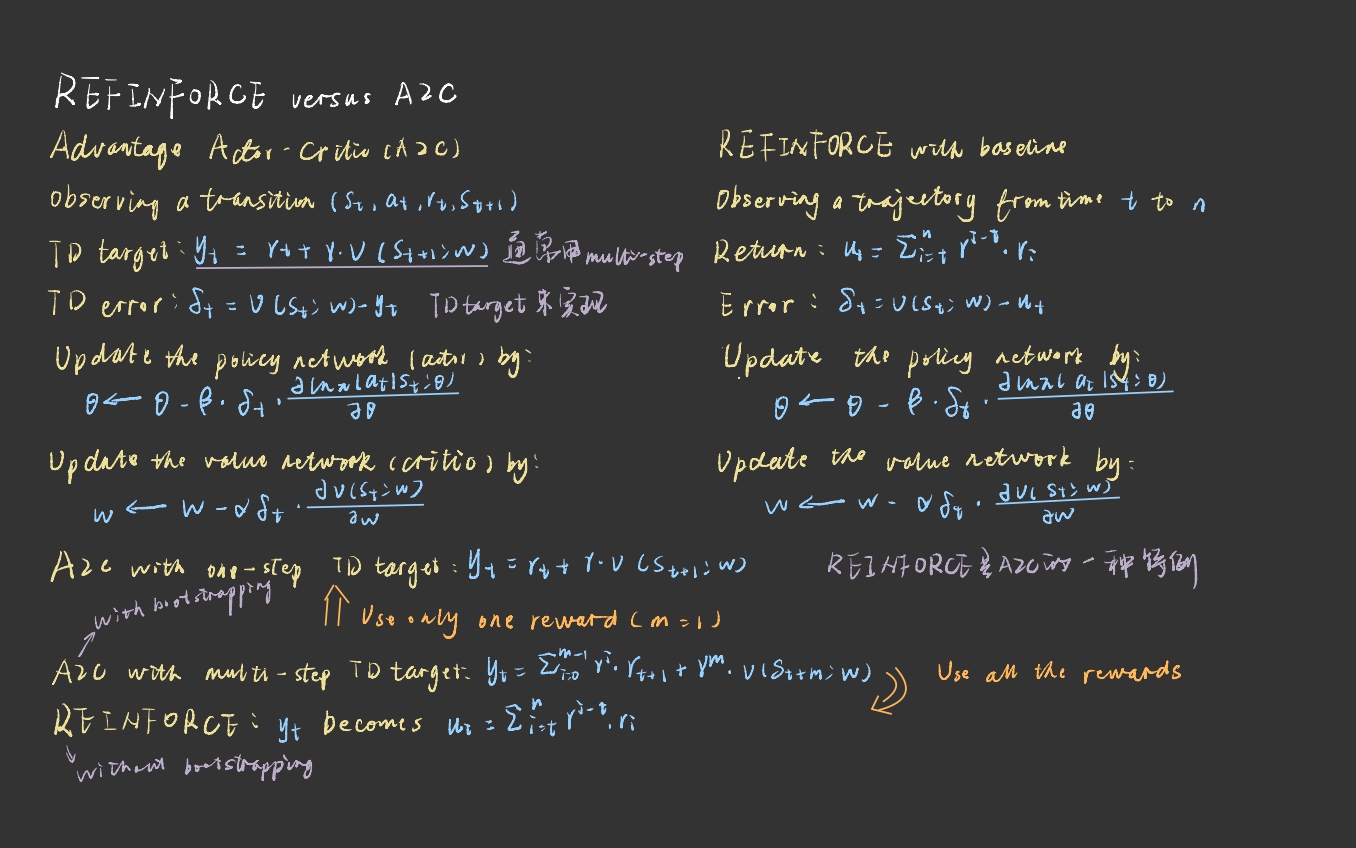 REFINFORCE versus A2C
Advantage Actor-Critic (A2C)
Observing a transition (s_t, a_t, r_t, s_{t+1})
TD target: y_t = r_t + γ·v(s_{t+1}; w) 通常用multi-step
TD error: δ_t = v(s_t; w) - y_t TD target来实现
Update the policy network (actor) by:
θ ← θ - β·δ_t·∂lnπ(a_t|s_t; θ)/∂θ
Update the value network (critic) by:
w ← w - αδ_t·∂v(s_t; w)/∂w
REFINFORCE with baseline
Observing a trajectory from time t to n
Return: u_t = Σ_{i=t}^n γ^{i-t}·r_i
Error: δ_t = v(s_t; w) - u_t
Update the policy network by:
θ ← θ - β·δ_t·∂lnπ(a_t|s_t; θ)/∂θ
Update the value network by:
w ← w - αδ_t·∂v(s_t; w)/∂w
A2C with one-step TD target: y_t = r_t + γ·v(s_{t+1}; w)
REINFORCE是A2C的一种特例
with bootstrapping
⇑ Use only one reward (m=1)
A2C with multi-step TD target: y_t = Σ_{i=0}^{m-1} γ^i·r_{t+1} + γ^m·v(s_{t+m}; w)
Use all the rewards
REINFORCE: y_t becomes u_t = Σ_{i=t}^n γ^{i-t}·r_i
without bootstrapping